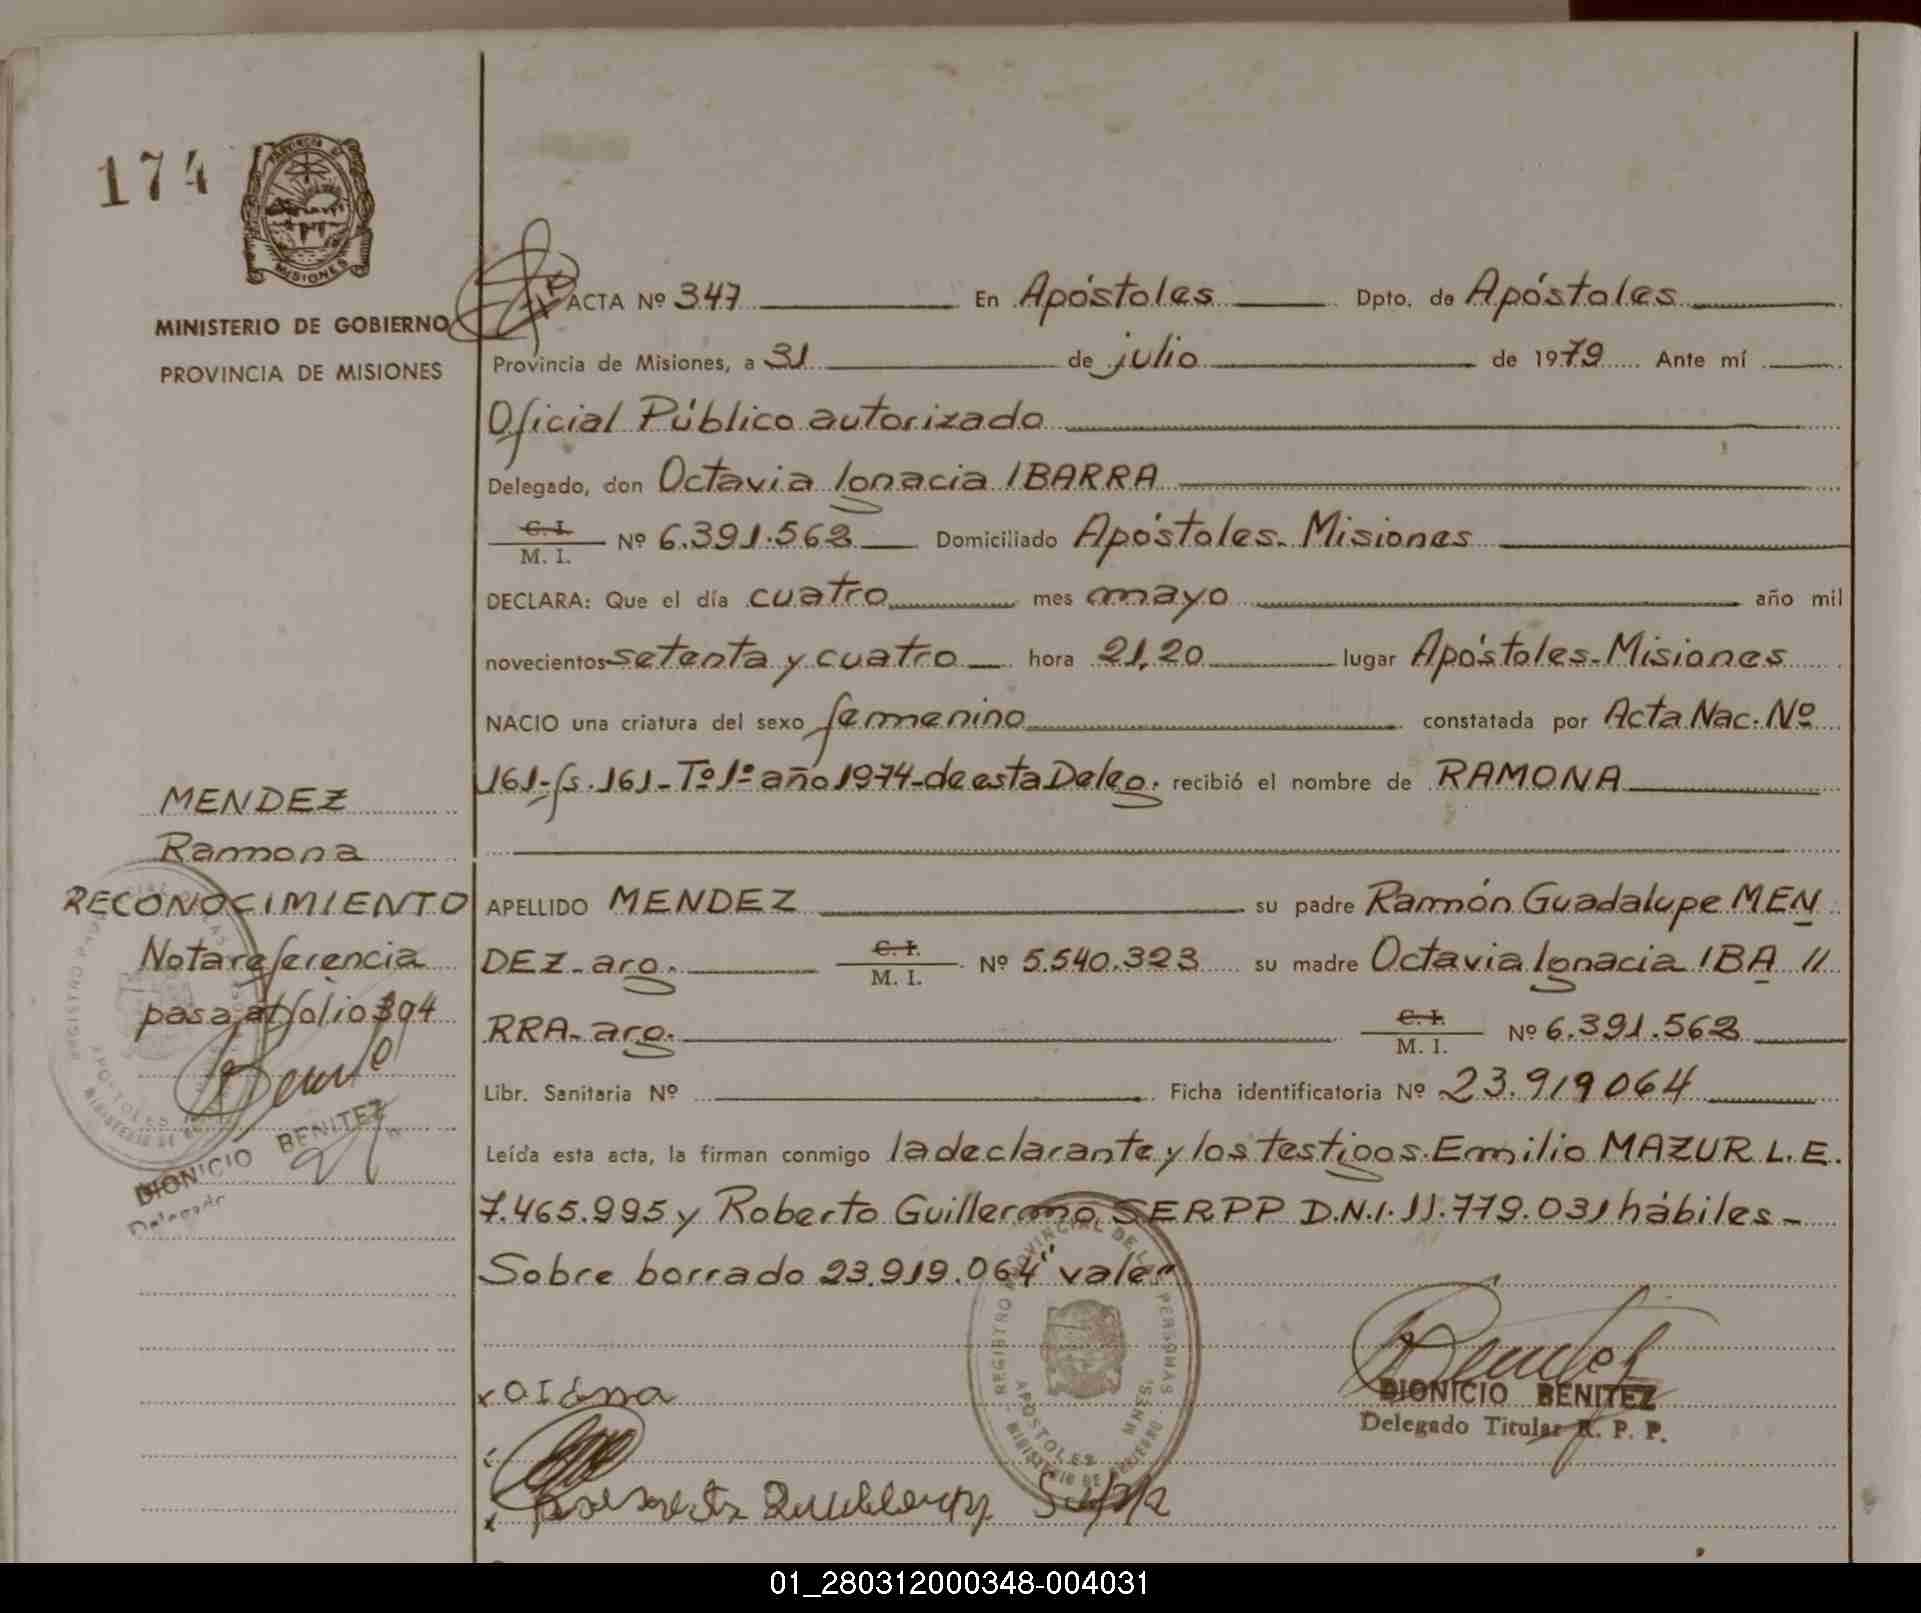 174
PROVINCIA DE
MISIONES
MINISTERIO DE GOBIERNO
PROVINCIA DE MISIONES
ACTA Nº 347 En Apóstoles Dpto. de Apóstoles
Provincia de Misiones, a 31 de julio de 1979 Ante mí
Oficial Público autorizado
Delegado, don Octavia Ignacia IBARRA
C. I.
M. I. Nº 6.391.562 Domiciliado Apóstoles-Misiones
DECLARA: Que el día cuatro mes mayo año mil
novecientos setenta y cuatro hora 21,20 lugar Apóstoles-Misiones
NACIO una criatura del sexo femenino constatada por Acta Nac. Nº
161-fs.161-Tº1º año 1974-de esta Deleg. recibió el nombre de RAMONA
APELLIDO MENDEZ su padre Ramón Guadalupe MEN
DEZ-arg. C. I.
M. I. Nº 5.540.323 su madre Octavia Ignacia IBA //
RRA-arg. C. I.
M. I. Nº 6.391.562
Libr. Sanitaria Nº Ficha identificatoria Nº 23.919064
Leída esta acta, la firman conmigo la declarante y los testigos. Emilio MAZUR L.E.
7.465.995 y Roberto Guillermo SERPP D.N.I. 11.779.031 hábiles-
Sobre borrado 23.919.064" vale"
MENDEZ
Ramona
RECONOCIMIENTO
Nota referencia
pasa al folio 394
DIONICIO BENITEZ
Delegado
REGISTRO PROVINCIAL DE LAS PERSONAS
APOSTOLES MNES.
MINISTERIO DE GOBIERNO
DIONICIO BENITEZ
Delegado Titular R. P. P.
01_280312000348-004031